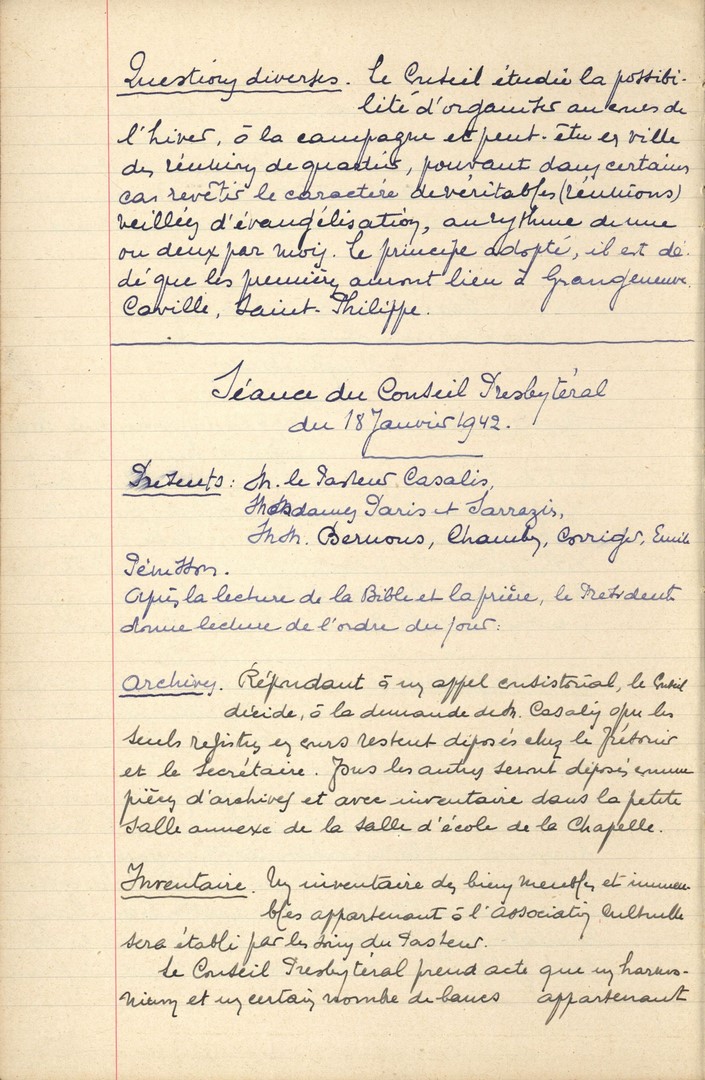 Questions diverses. Le Conseil étudie la possibi-
lité d'organiser au cours de
l'hiver, à la campagne et peut-être en ville
des réunions de quartier, pouvant dans certains
cas revêtir le caractère de véritables (réunions)
veillées d'évangélisation, au rythme de une
ou deux par mois. Le principe adopté, il est dé-
dé que les premières auront lieu à Grangeneuve,
Caville, Saint-Philippe.
Séance du Conseil Presbytéral
du 18 Janvier 1942.
Présents: M. le Pasteur Casalis,
Mesdames Paris et Sarrazin,
MM. Bernous, Corriger, Emile
Après la lecture de la Bible et la prière, le Président
donne lecture de l'ordre du jour:
Archives. Répondant à un appel consistorial, le Conseil
décide, à la demande de M. Casalis que les
seuls registres en cours restent déposés chez le Trésorier
et le Secrétaire. Tous les autres seront déposés comme
pièces d'archives et avec inventaire dans la petite
salle annexe de la salle d'école de la Chapelle.
Inventaire. Un inventaire des biens meubles et immeu-
bles appartenant à l'Association Cultuelle
sera établi par les soins du Pasteur.
Le Conseil Presbytéral prend acte que un harmo-
nium et un certain nombre de bancs appartenant